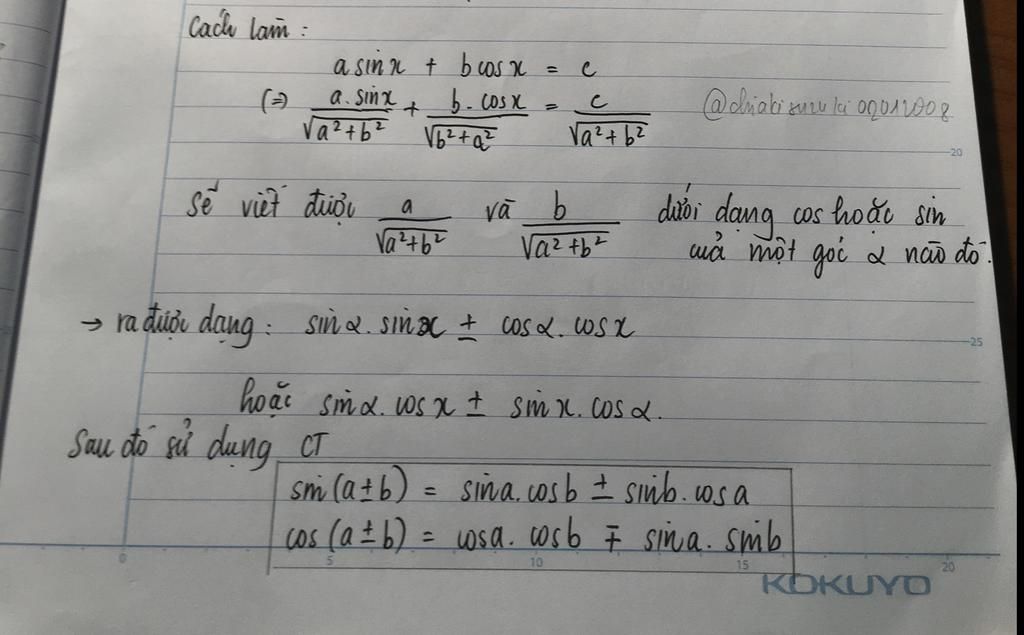 Cách làm :
a sinx + b cosx = c
(=) a.sinx/√(a²+b²) + b.cosx/√(b²+a²) = c/√(a²+b²)
20
sẽ viết được a/√(a²+b²) và b/√(a²+b²) dưới dạng cos hoặc sin
của một góc α nào đó.
→ ra được dạng : sinα.sinx ± cosα.cosx
25
hoặc sinα.cosx ± sinx.cosα.
Sau đó sử dụng CT
sin(a±b) = sina.cosb ± sinb.cosa
cos(a±b) = cosa.cosb ∓ sina.sinb
0 5 10 15 20
KOKUYO